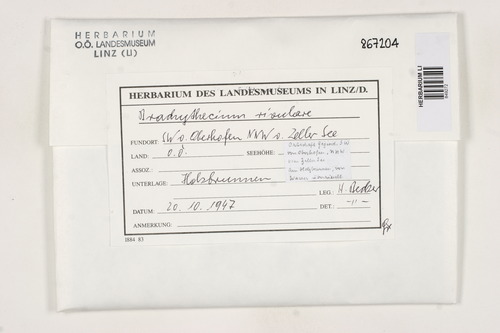 HERBARIUM
O.Ö. LANDESMUSEUM
LINZ (LI)
867204
HERBARIUM LI
HERBARIUM DES LANDESMUSEUMS IN LINZ/D.
Brachythecium rivulare
FUNDORT: SW v. Oberhofen NNW v. Zeller See
LAND: O.Ö.
SEEHÖHE:
ASSOZ.:
UNTERLAGE: Holzbrunnen
LEG.: H. Becker
DATUM: 20.10.1947
DET.: -"-
ANMERKUNG:
1884 83